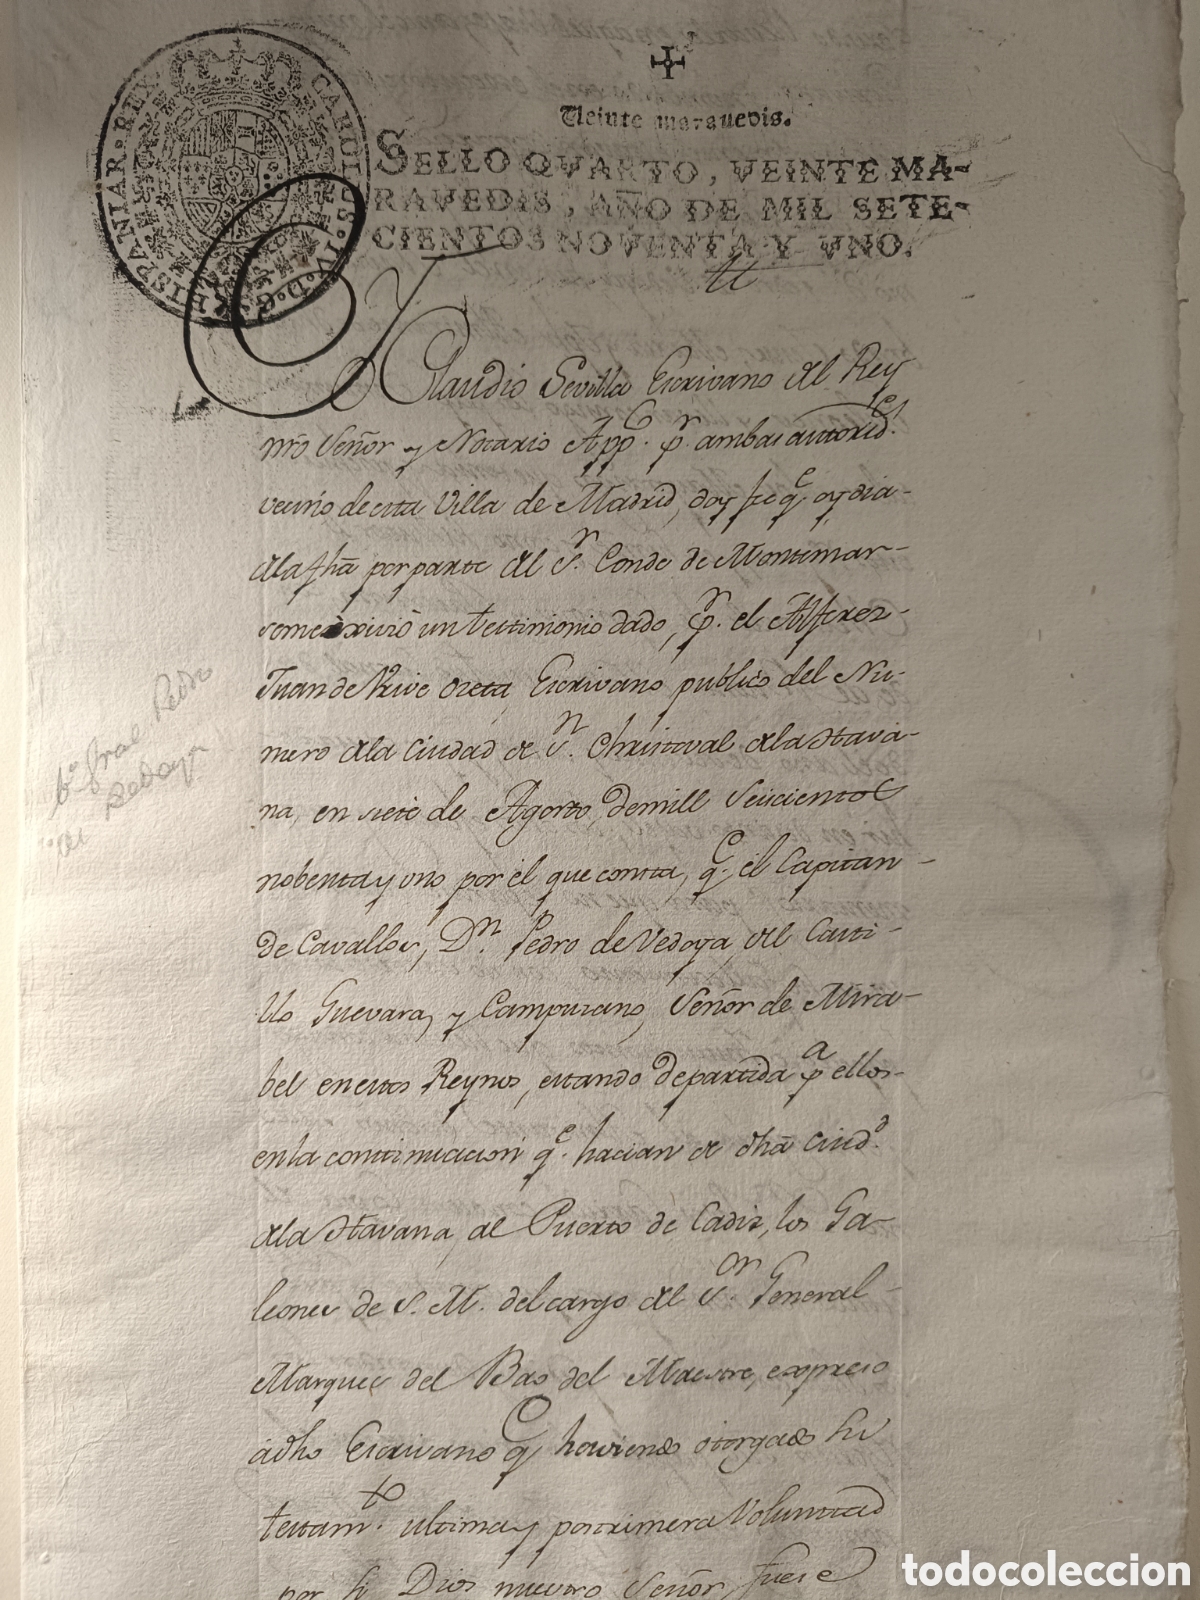 CAROLUS·IV·D·G·HISPANIAR·REX·
Veinte maravedis.
SELLO QVARTO, VEINTE MA-
RAVEDIS, AÑO DE MIL SETE-
CIENTOS NOVENTA Y UNO.
Yo Claudio Sevilla Escrivano del Rey
nrõ Señor y Notario Appco. pr. ambas autorides.
vecino de esta Villa de Madrid, doy fee qe. oy dia-
de la fhã por parte del Sr. Conde de Montemar-
se me exivió un testimonio dado, pr. el Alferez-
Juan de Vrive Ozeta, Escrivano publico del Nu-
mero de la Ciudad de Sn. Christoval de la Hava-
na, en siete de Agosto, de mill Seiscientos
nobenta y uno por el que consta, qe. el Capitan-
de Cavallos, Dn. Pedro de Vedoya, del Casti-
llo Guevara, y Campuzano, Señor de Mira-
bel en estos Reynos, estando de partida pa ellos-
en la continuacion qe. hacian de dhã Ciudd.
de la Havana, al Puerto de Cadiz, los Ga-
leones de S. M. del cargo del Sor. General-
Marques del Bao del Maestre, expreso
á dho Escrivano qe haviendo otorgado su
testamto. ultima y postrimera Voluntad
por si Dios nuestro Señor, fuese
todocoleccion